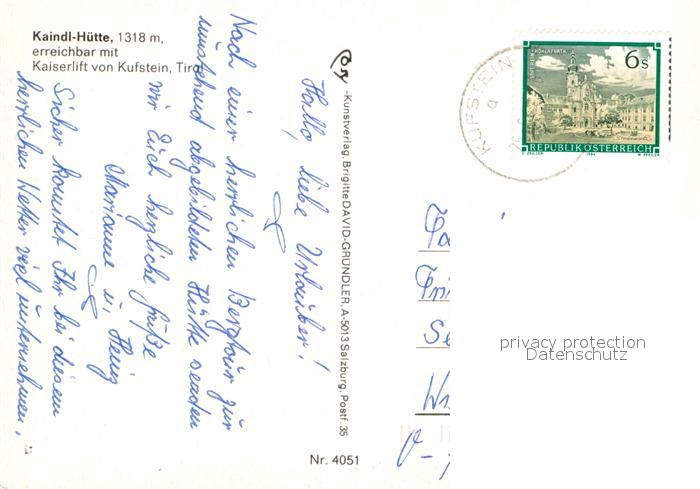 Kaindl-Hütte, 1318 m,
erreichbar mit
Kaiserlift von Kufstein, Tirol
-Kunstverlag, Brigitte DAVID-GRÜNDLER, A-5013 Salzburg, Postf. 35
Nr. 4051
Hallo, liebe Urlauber!
Nach einer herrlichen Bergtour zur
umstehend abgebildeten Hütte senden
wir Euch herzliche Grüße
Marianne u. Heinz
Sicher konntet Ihr bei diesem
herrlichen Wetter viel unternehmen.
KUFSTEIN
6s
REPUBLIK ÖSTERREICH
1984
W. PFEILER
Fa
Se
privacy protection
Datenschutz